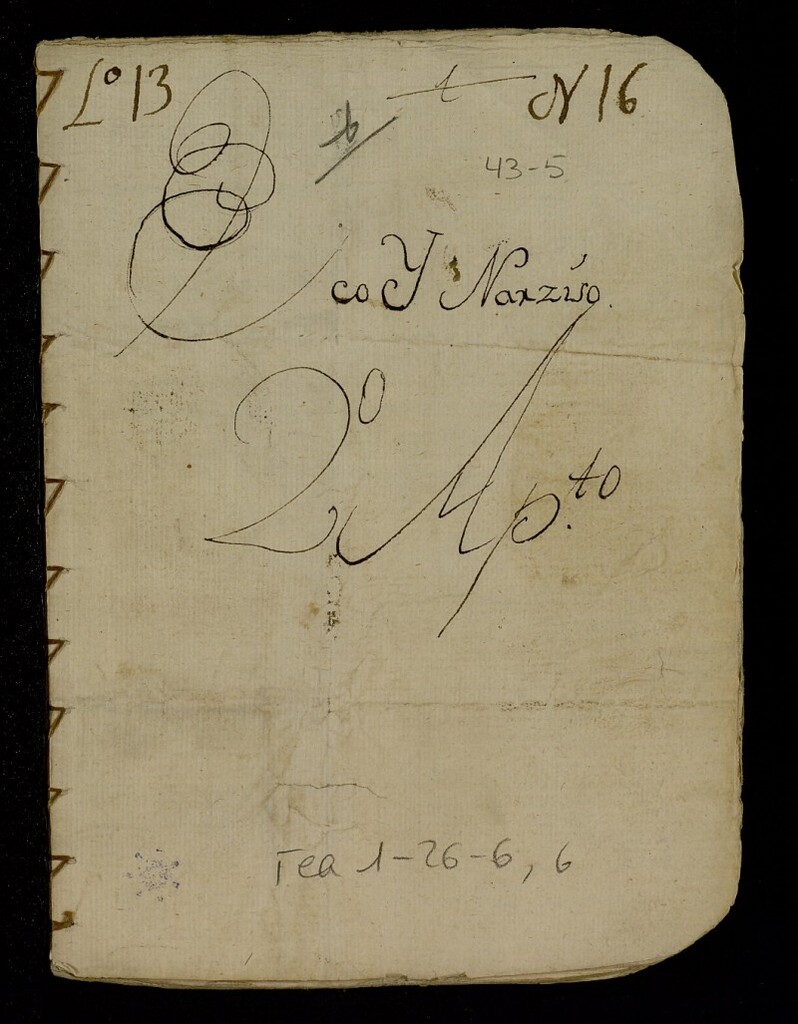 Lº 13 N 16
b
43-5
Eco Y Narziso.
2º Ap.to
Tea 1-26-6, 6